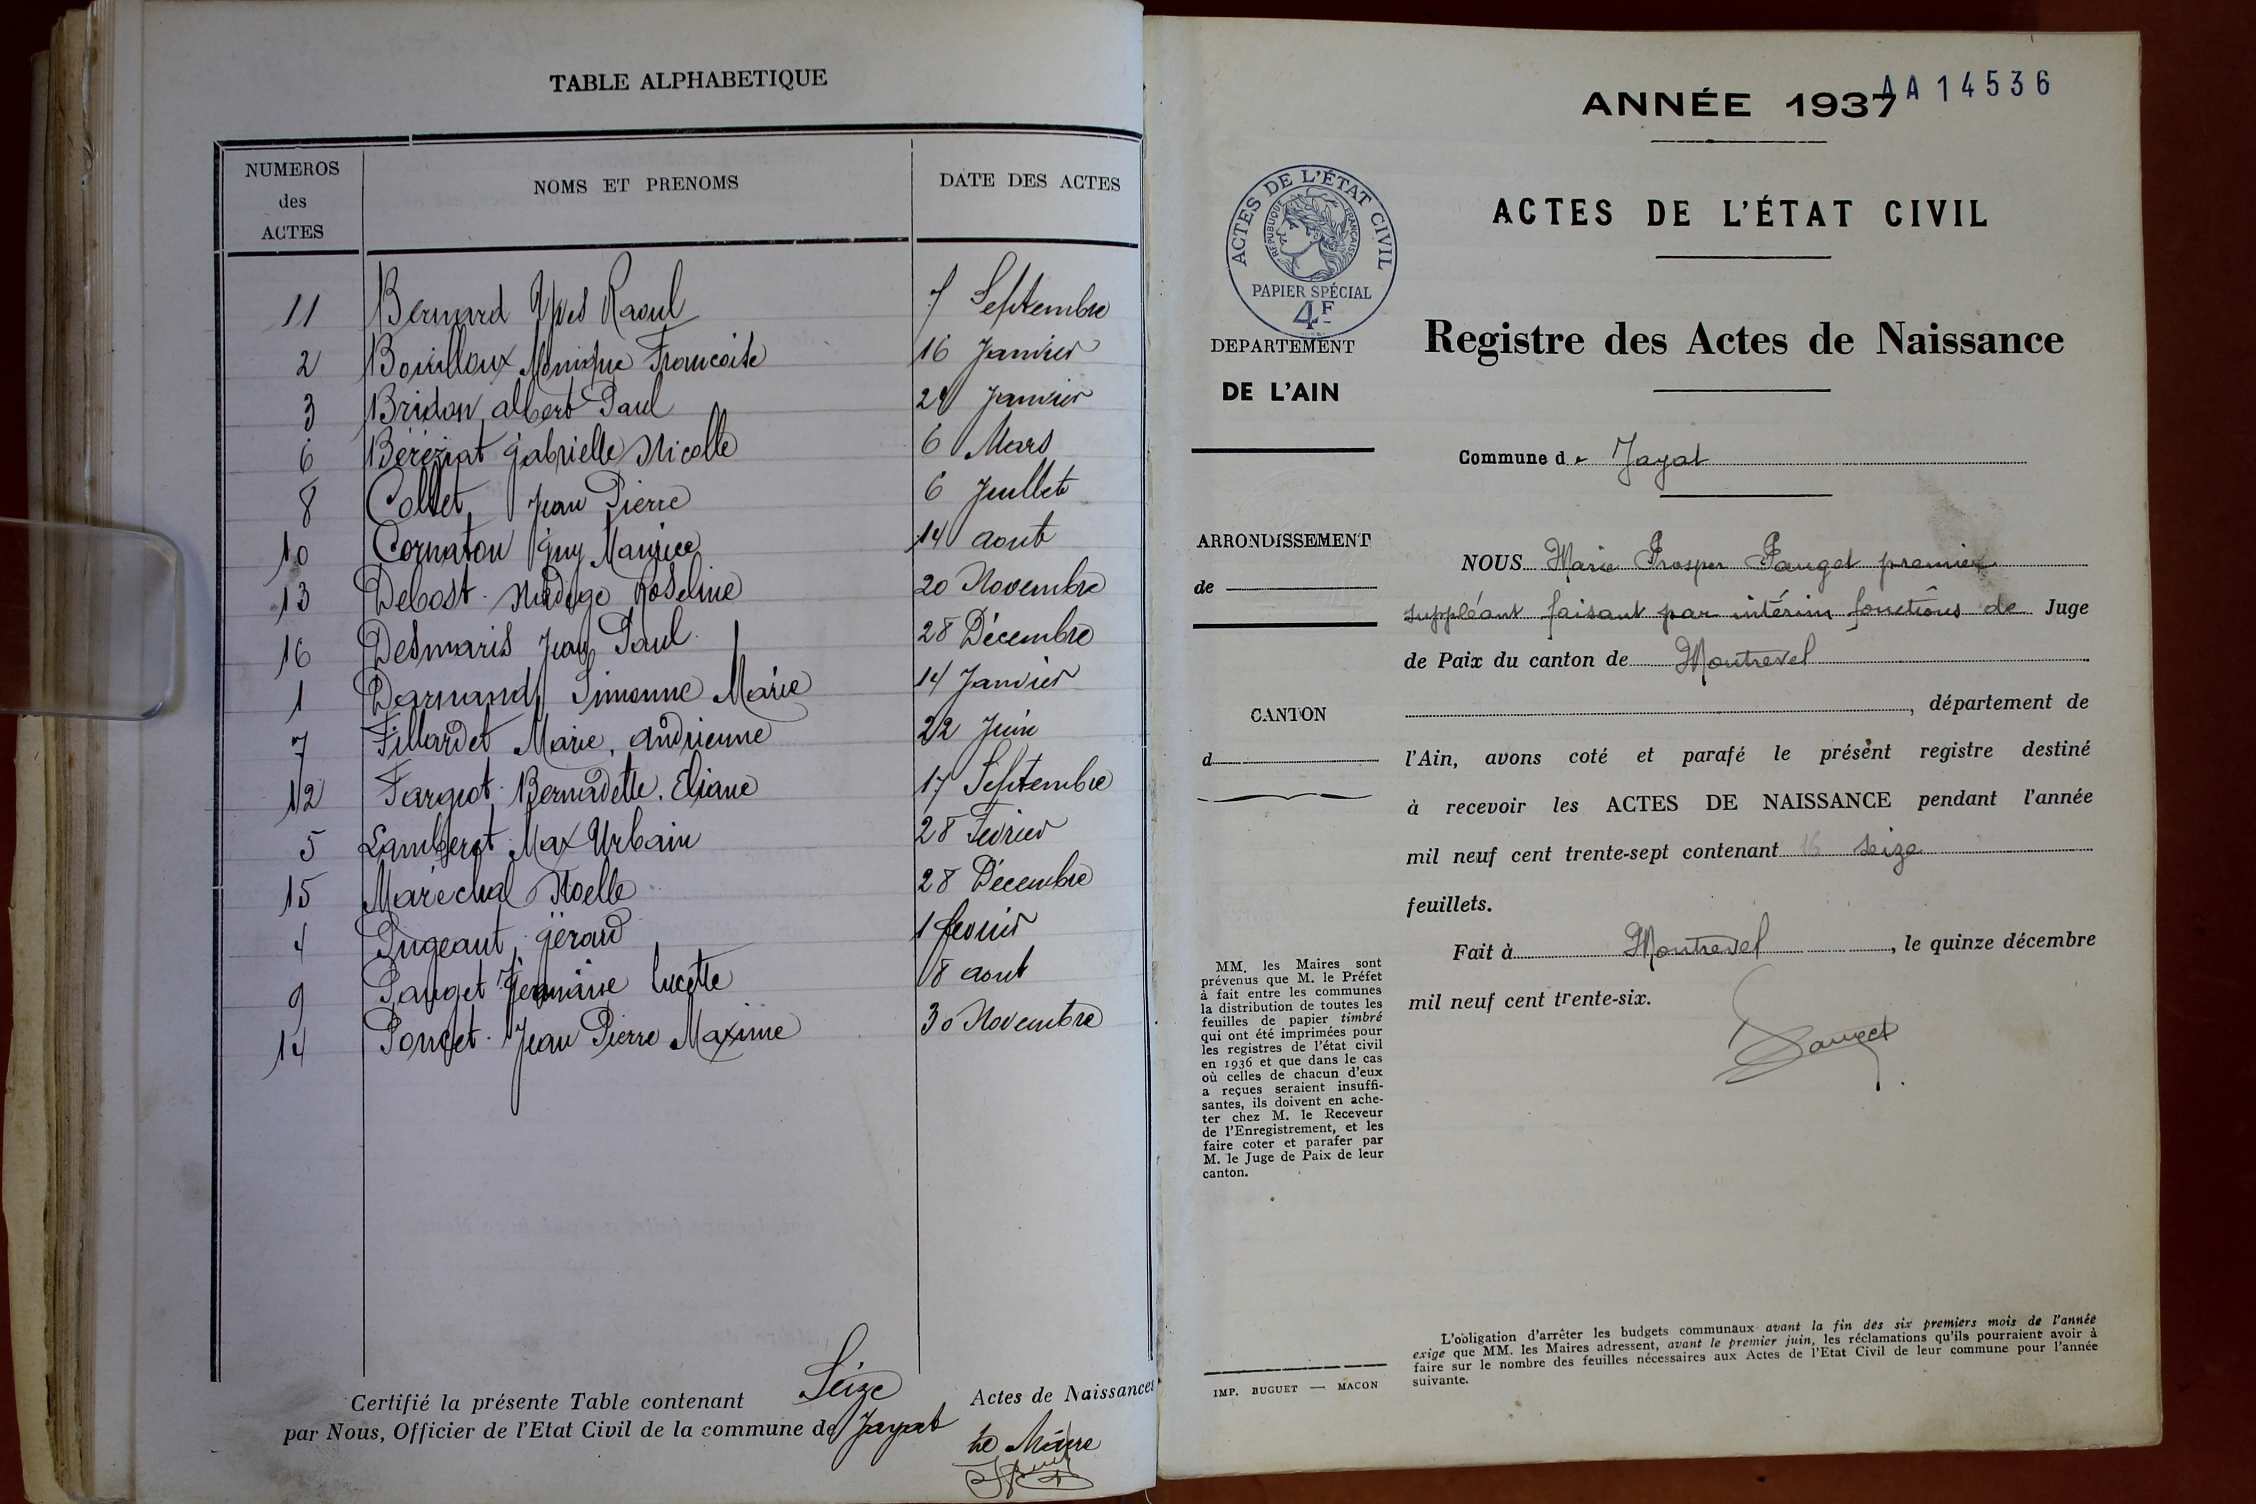 TABLE ALPHABETIQUE
NUMEROS
des
ACTES
NOMS ET PRENOMS
DATE DES ACTES
11 Bernard Yves Raoul 7 Septembre
2 Bouilloux Monique Francoise 16 Janvier
3 Bridon albert Paul 29 Janvier
6 Béréziat Gabrielle Nicolle 6 Mars
8 Collet Jean Pierre 6 Juillet
10 Cornaton Guy Maurice 14 aout
13 Debost Nadège Roseline 20 Novembre
16 Desmaris Jean Paul 28 Décembre
1 Darnand Simonne Marie 14 Janvier
7 Fillardet Marie, andrienne 22 Juin
12 Fargeot Bernadette. Eliane 17 Septembre
5 Lamberet Max Urbain 28 Fevrier
15 Maréchal Noelle 28 Décembre
4 Pugeaut Gérard 1 fevrier
9 Pauget Germaine lucette 8 aout
14 Ponçet Jean Pierre Maxime 30 Novembre
Certifié la présente Table contenant Seize Actes de Naissances
par Nous, Officier de l'Etat Civil de la commune de Jayat
Le Maire
AA14536
ANNÉE 1937
ACTES DE L'ÉTAT CIVIL
ACTES DE L'ÉTAT CIVIL
RÉPUBLIQUE FRANÇAISE
PAPIER SPÉCIAL
4F
Registre des Actes de Naissance
DEPARTEMENT
DE L'AIN
Commune de Jayat
ARRONDISSEMENT
de
CANTON
d
NOUS Marie Prosper Pauget premier
suppléant faisant par intérim fonctions de Juge
de Paix du canton de Montrevel
, département de
l'Ain, avons coté et parafé le présent registre destiné
à recevoir les ACTES DE NAISSANCE pendant l'année
mil neuf cent trente-sept contenant 16 seize
feuillets.
Fait à Montrevel, le quinze décembre
mil neuf cent trente-six.
Pauget
MM. les Maires sont
prévenus que M. le Préfet
à fait entre les communes
la distribution de toutes les
feuilles de papier timbré
qui ont été imprimées pour
les registres de l'état civil
en 1936 et que dans le cas
où celles de chacun d'eux
a reçues seraient insuffi-
santes, ils doivent en ache-
ter chez M. le Receveur
de l'Enregistrement, et les
faire coter et parafer par
M. le Juge de Paix de leur
canton.
IMP. BUGUET — MACON
L'obligation d'arrêter les budgets communaux avant la fin des six premiers mois de l'année
exige que MM. les Maires adressent, avant le premier juin, les réclamations qu'ils pourraient avoir à
faire sur le nombre des feuilles nécessaires aux Actes de l'Etat Civil de leur commune pour l'année
suivante.